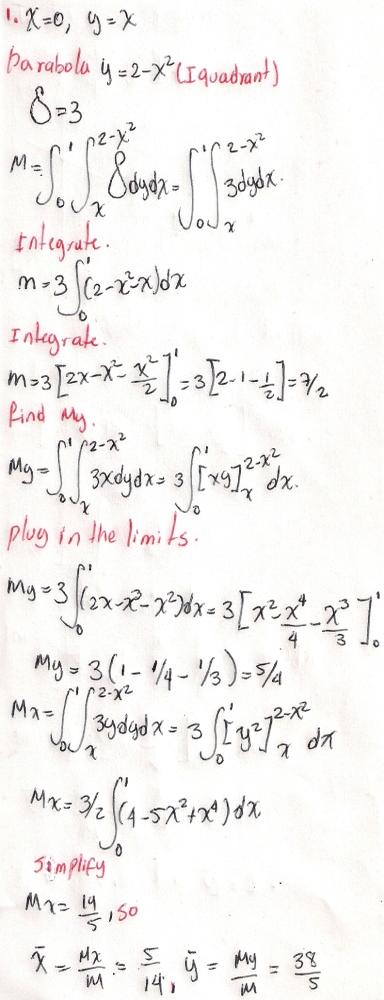 1. x=0, y=x
Parabola y=2-x² (I quadrant)
δ=3
M=∫₀¹∫ₓ^{2-x²} δdydx=∫₀¹∫ₓ^{2-x²} 3dydx.
Integrate.
m=3∫₀¹(2-x²-x)dx
Integrate.
m=3[2x-x²-x²/2]₀¹=3[2-1-1/2]=7/2
find My.
My=∫₀¹∫ₓ^{2-x²} 3xdydx=3∫₀¹[xy]ₓ^{2-x²} dx.
plug in the limits.
My=3∫₀¹(2x-x³-x²)dx=3[x²-x⁴/4-x³/3]₀¹
My=3(1-1/4-1/3)=5/4
Mx=∫₀¹∫ₓ^{2-x²} 3ydydx=3∫₀¹[y²]ₓ^{2-x²} dx
Mx=3/2∫₀¹(4-5x²+x⁴)dx
Simplify
Mx=19/5, so
x̄=Mx/M=5/14, ȳ=My/m=38/5